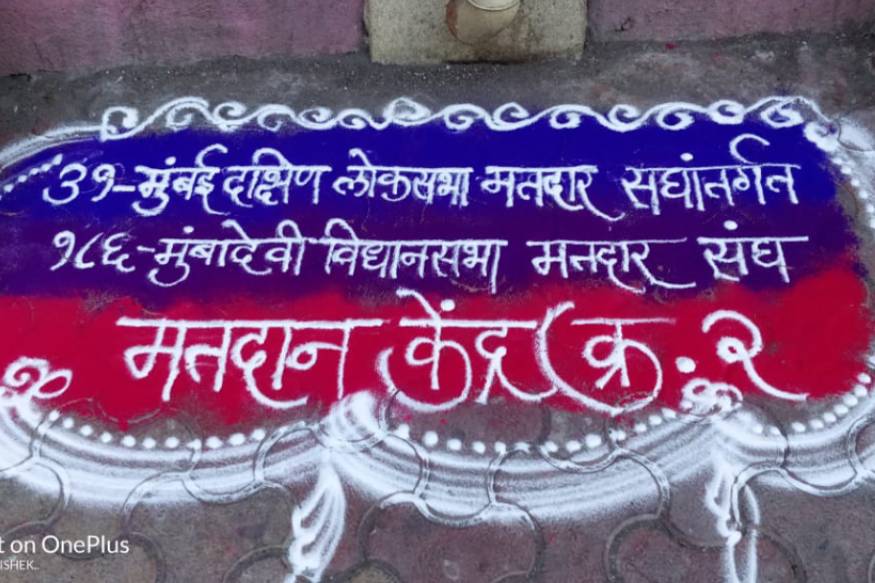 ३१-मुंबई दक्षिण लोकसभा मतदार सघांतर्गत
१८६-मुंबादेवी विधानसभा मतदार संघ
मतदान केंद्र क्र. २
on OnePlus